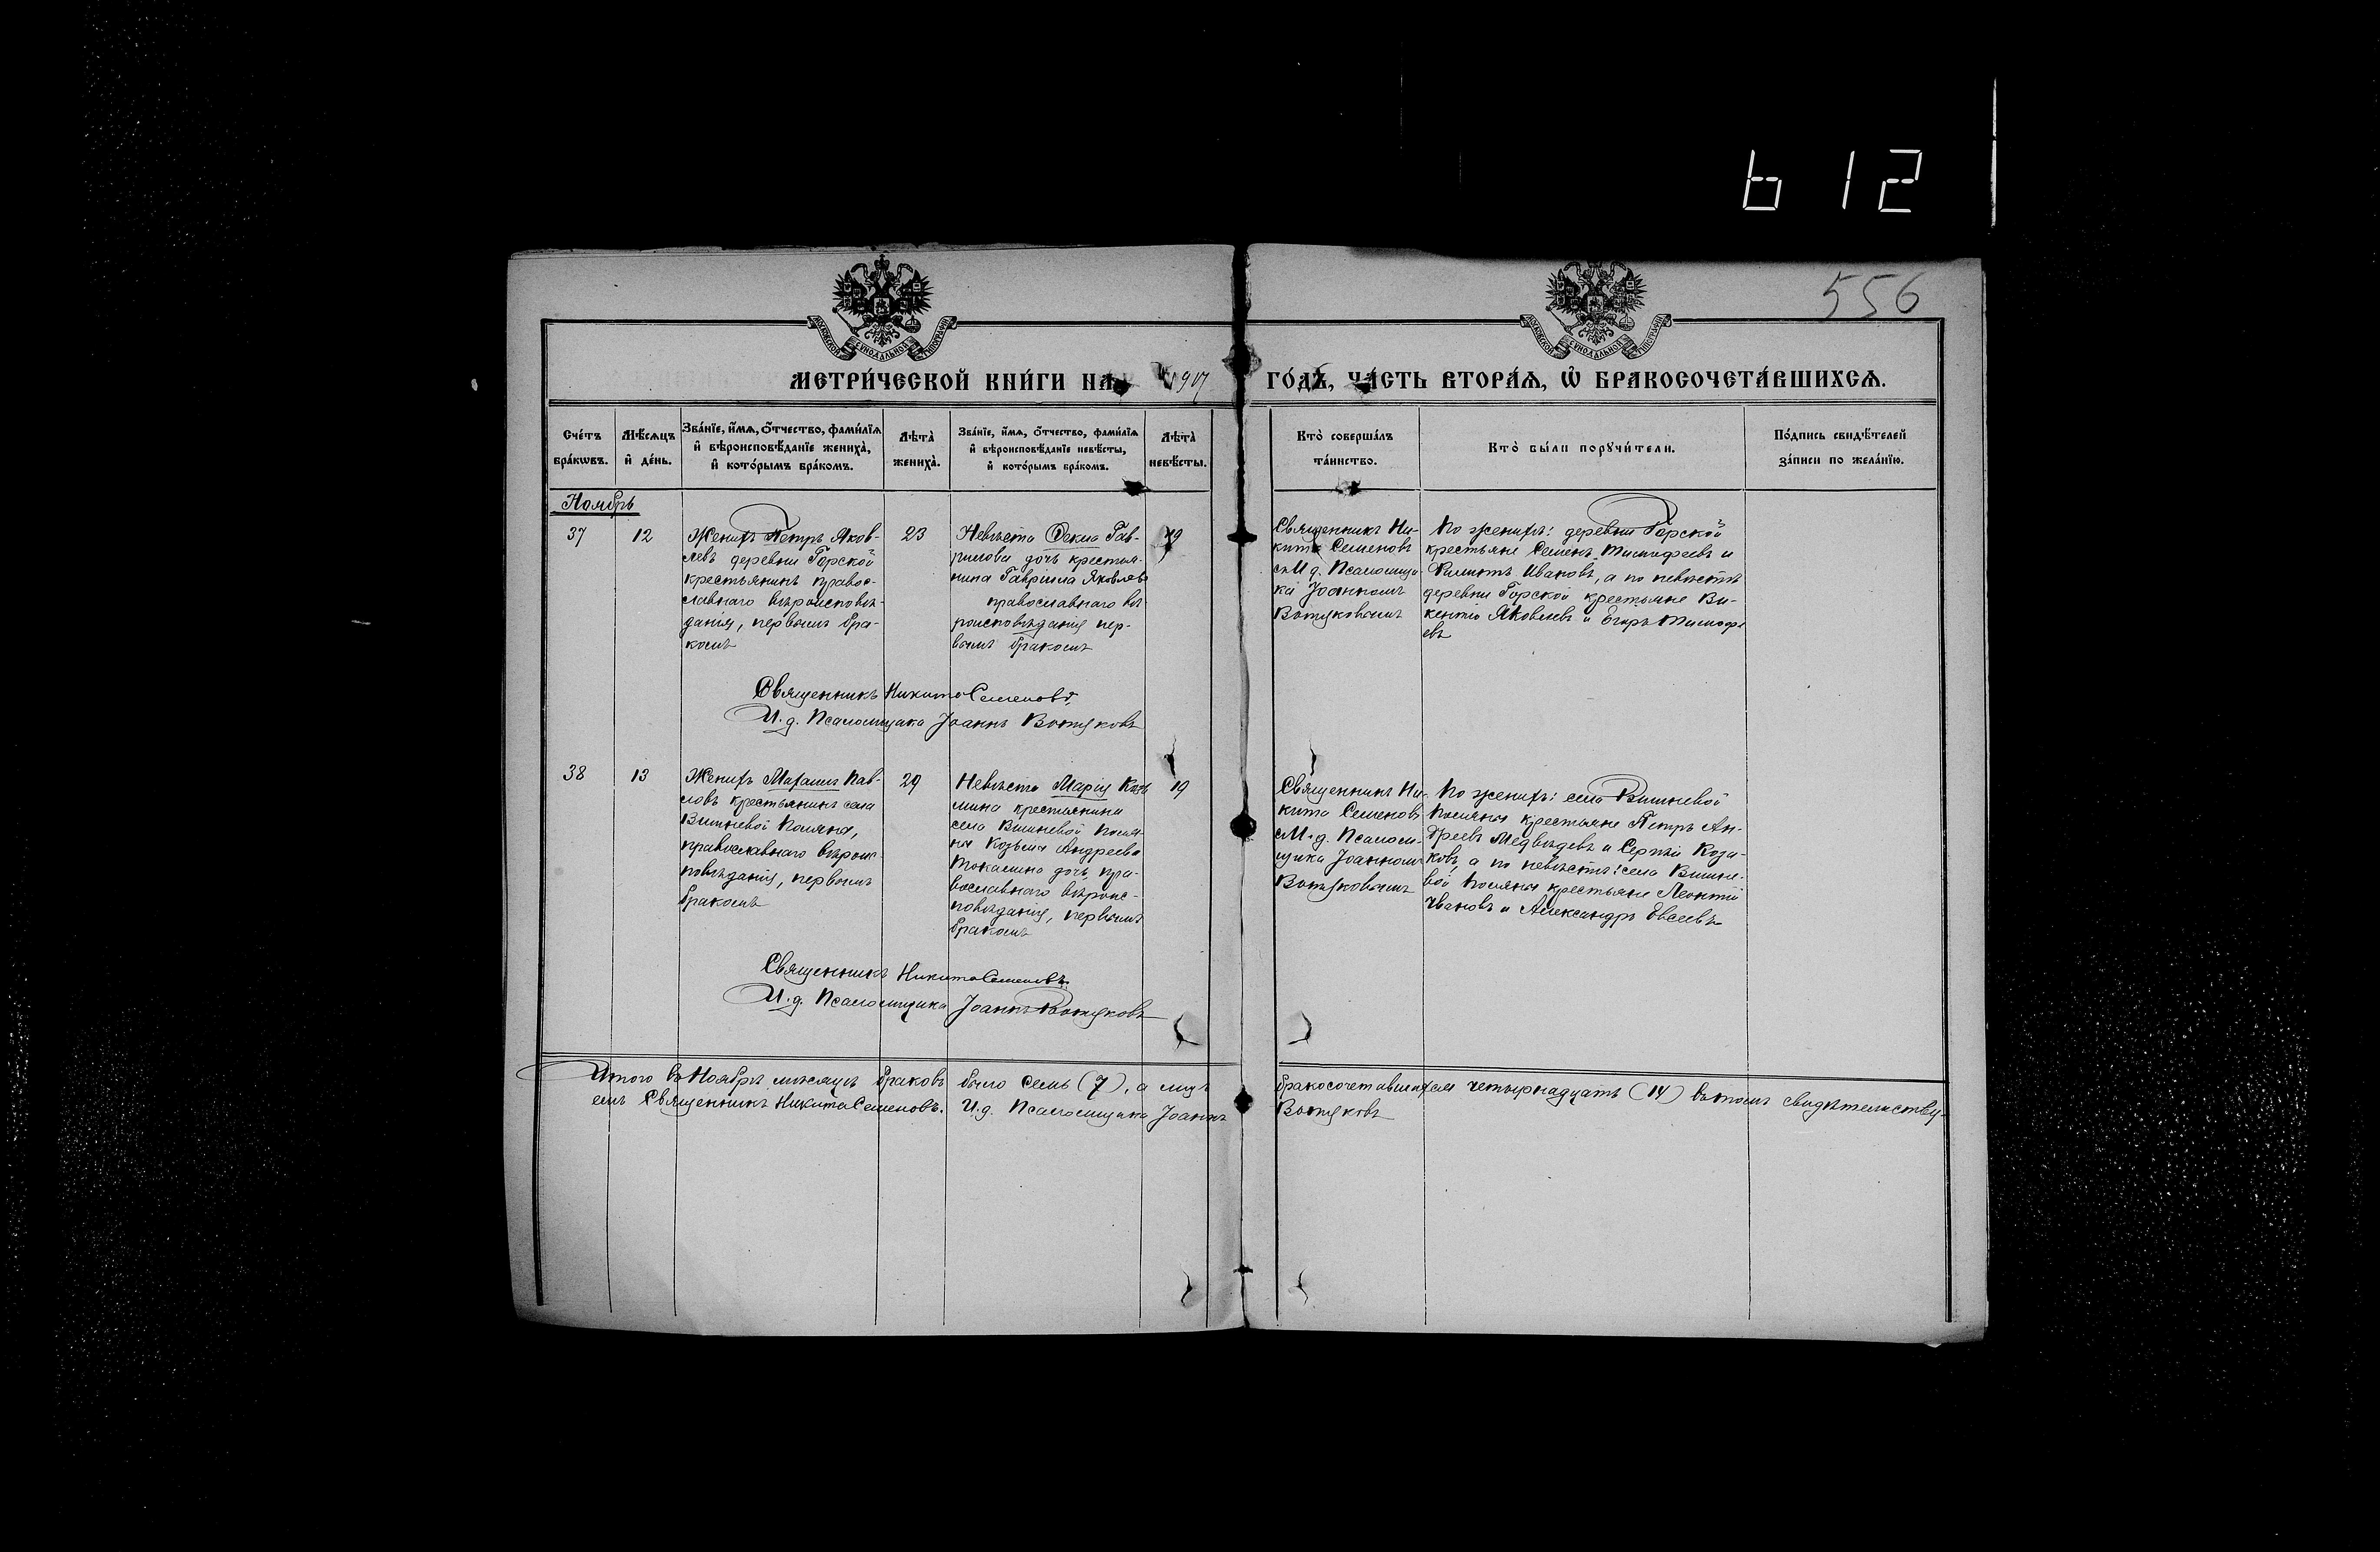 612
556
МЕТРИ́ЧЕСКОЙ КНИ́ГИ НА 1907 ГО́ДЪ, ЧА́СТЬ ВТОРА́Я, Ѿ БРАКОСОЧЕТА́ВШИХСЯ.
Сче́тъ бра́кѡвъ.
Мѣ́сяцъ и҆ де́нь.
Зва́нїе, и҆́мя, ѻ҆́тчество, фами́лїя и҆ вѣроисповѣ́данїе жениха̀, и҆ кото́рымъ бра́комъ.
Лѣта̀ жениха̀.
Зва́нїе, и҆́мя, ѻ҆́тчество, фами́лїя и҆ вѣроисповѣ́данїе невѣ́сты, и҆ кото́рымъ бра́комъ.
Лѣта̀ невѣ́сты.
Кто̀ соверша́лъ та́инство.
Кто̀ бы́ли порꙋчи́тели.
По́дпись свидѣ́телей за́писи по жела́нїю.
Ноябрь
37
12
Женихъ Петръ Яков-
левъ деревни Горской
крестьянинъ правос-
лавнаго вѣроисповѣ-
данія, первымъ бра-
комъ
23
Невѣста Фекла Гав-
рилова дочь крестья-
нина Гавріила Яковлева
православнаго вѣ-
роисповѣданія пер-
вымъ бракомъ
19
Священникъ Ни-
кита Семеновъ
съ И.д. Псаломщи-
ка Іоанномъ
Вотяковымъ
По женихѣ: деревни Горской
крестьяне Семенъ Тимофеевъ и
Филиппъ Ивановъ, а по невѣстѣ
деревни Горской крестьяне Ви-
кентій Яковлевъ и Егоръ Тимофе
евъ
Священникъ Никита Семеновъ.
И.д. Псаломщика Іоаннъ Вотяковъ
38
13
Женихъ Михаилъ Пав-
ловъ крестьянинъ села
Вишневой Поляны,
православнаго вѣроис-
повѣданія, первымъ
бракомъ
29
Невѣста Марія Козь
мина крестьянина
села Вишневой Поля-
ны Козьмы Андреева
Токалина дочь, пра-
вославнаго вѣроис-
повѣданія, первымъ
бракомъ
19
Священникъ Ни-
кита Семеновъ
съ И.д. Псалом-
щика Іоанномъ
Вотяковымъ
По женихѣ: села Вишневой
Поляны крестьяне Петръ Ан-
дреевъ Медвѣдевъ и Сергѣй Коза-
ковъ, а по невѣстѣ: села Вишне-
вой Поляны крестьяне Леонтій
Ивановъ и Александръ Евсеевъ
Священникъ Никита Семеновъ.
И.д. Псаломщика Іоаннъ Вотяковъ
Итого въ Ноябрѣ мѣсяцѣ браковъ было семь (7), а лицъ бракосочетавшихся четырнадцать (14) въ томъ свидѣтельству-
емъ Священникъ Никита Семеновъ. И.д. Псаломщика Іоаннъ Вотяковъ